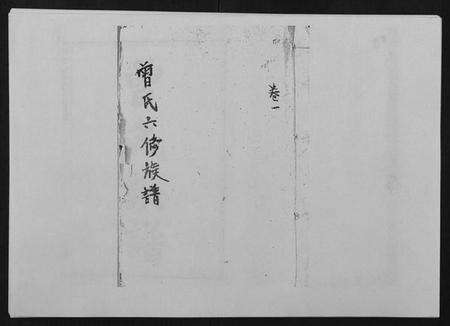 卷一
曾氏六修族譜